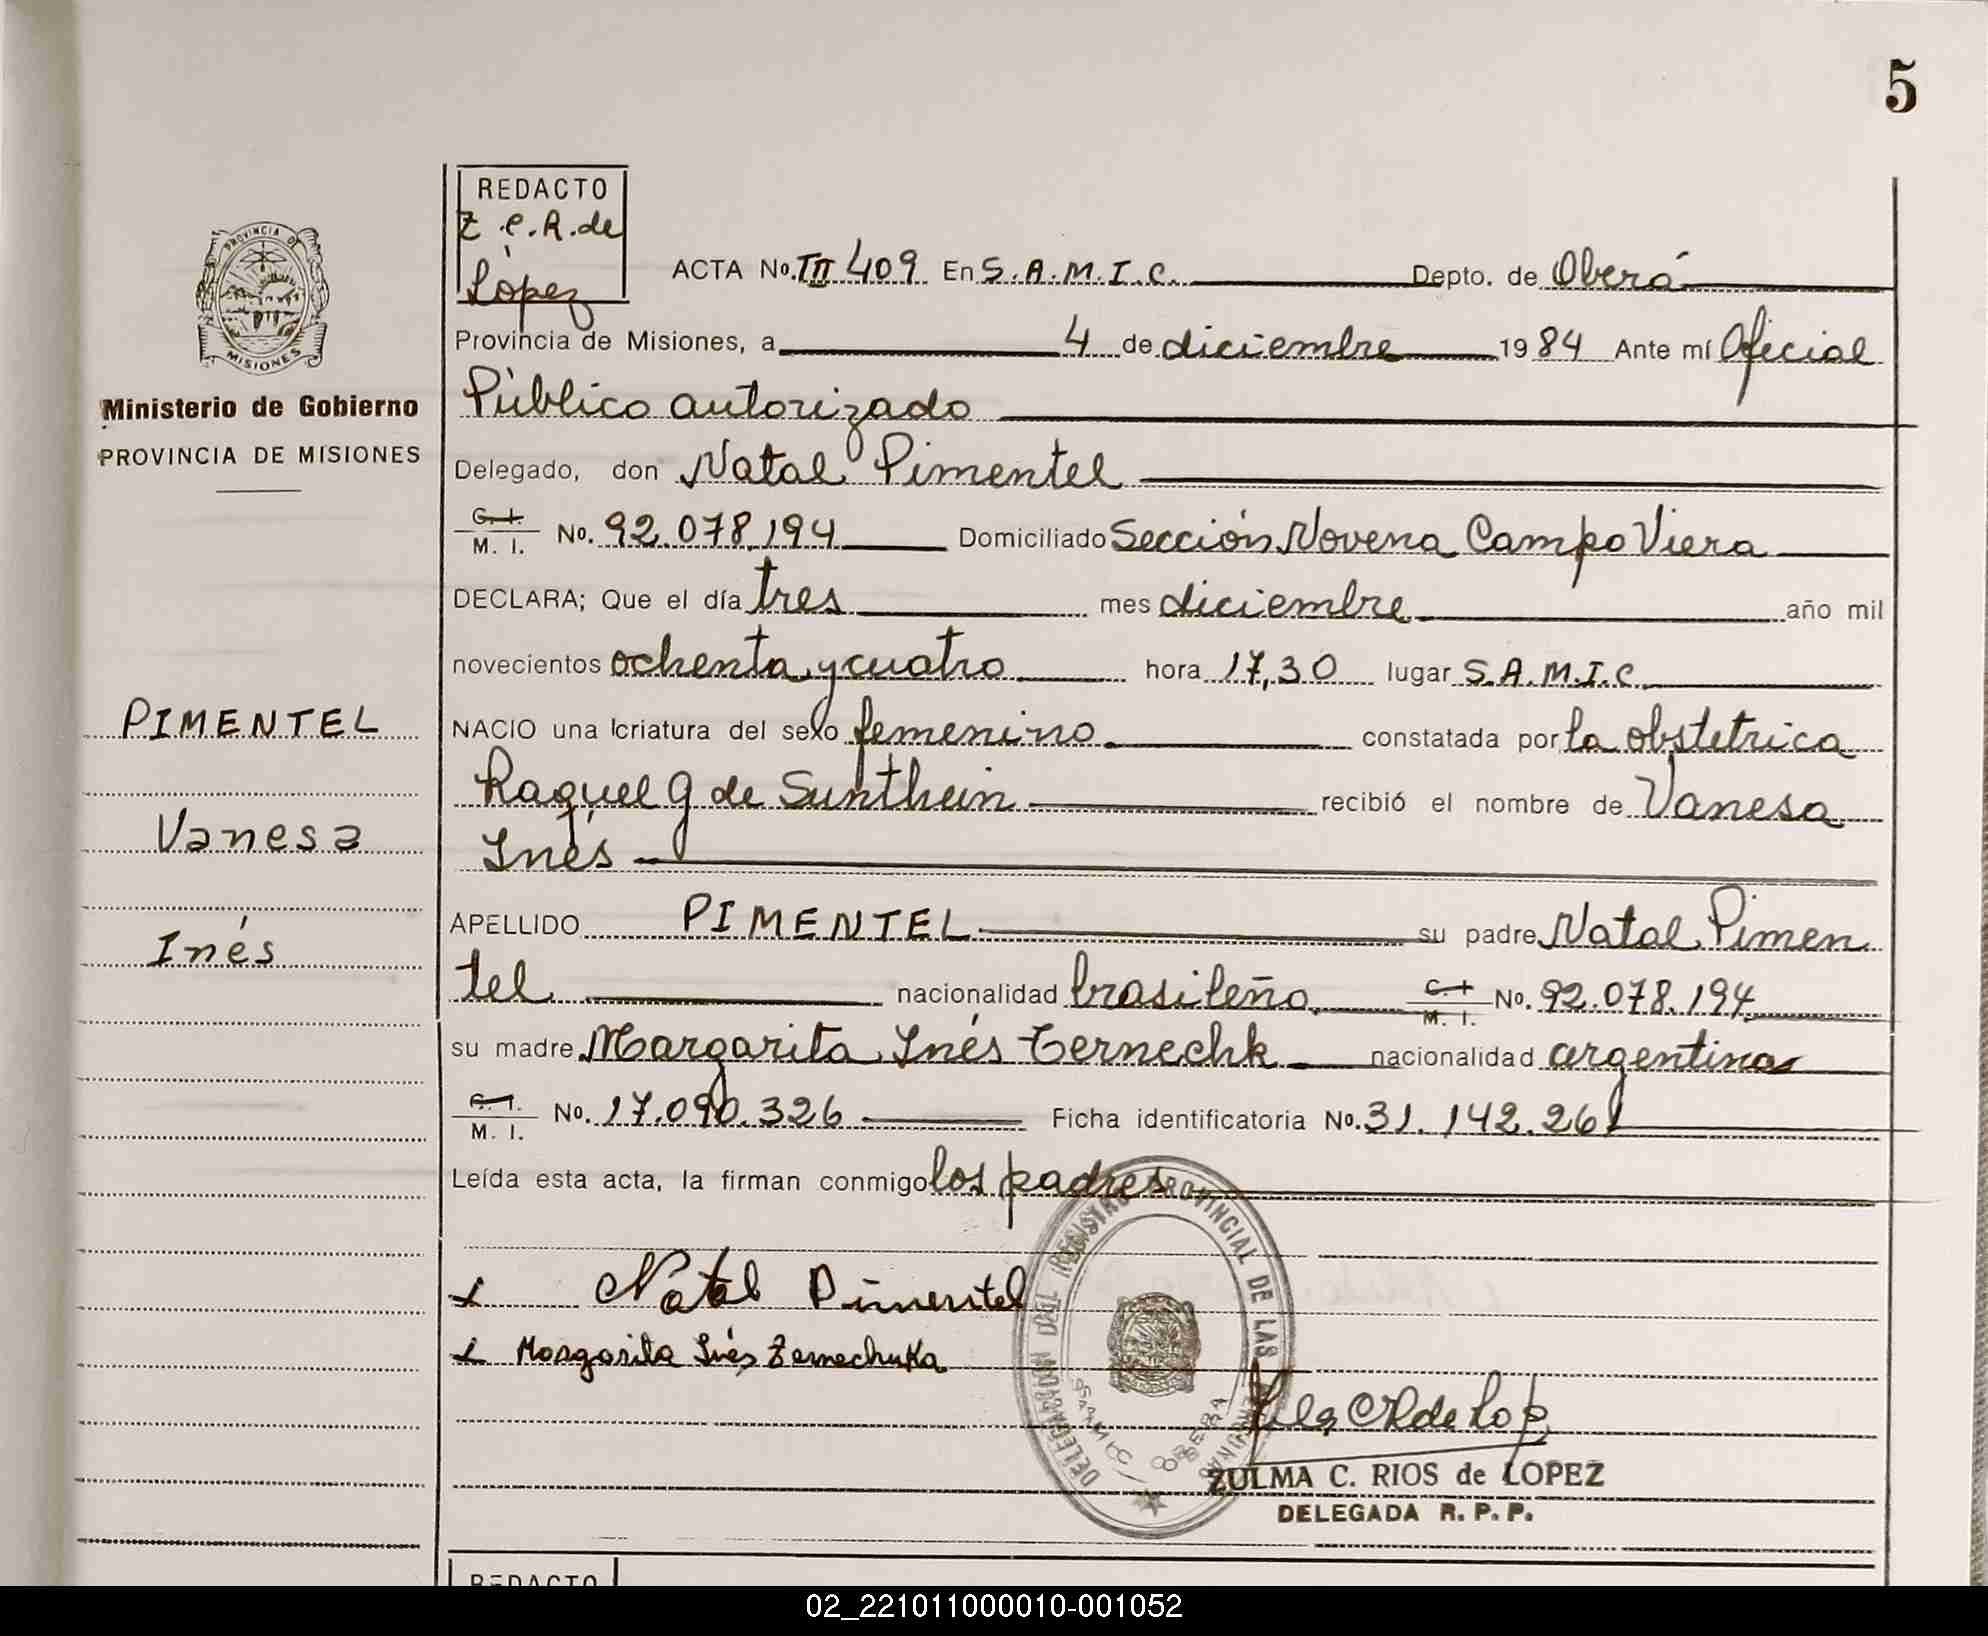 5
REDACTO
Z.C.R.de
López
PROVINCIA DE
MISIONES
Ministerio de Gobierno
PROVINCIA DE MISIONES
ACTA No. TII 409 En S.A.M.I.C. Depto. de Oberá
Provincia de Misiones, a 4 de diciembre 1984 Ante mí Oficial
Público autorizado
Delegado, don Natal Pimentel
C. I.
M. I. No. 92.078.194 Domiciliado Sección Novena Campo Viera
DECLARA; Que el día tres mes diciembre año mil
novecientos ochenta y cuatro hora 17,30 lugar S.A.M.I.C.
NACIO una criatura del sexo femenino constatada por la obstetrica
Raquel G de Sunthein recibió el nombre de Vanesa
Inés
APELLIDO PIMENTEL su padre Natal Pimen
tel nacionalidad brasileño C. I.
M. I. No. 92.078.194
su madre Margarita Inés Cernechk nacionalidad argentina
C. I.
M. I. No. 17.090.326 Ficha identificatoria No. 31.142.261
Leída esta acta, la firman conmigo los padres
PIMENTEL
Vanesa
Inés
Natal Pimentel
Margarita Inés Zernechuka
DELEGACION DEL REGISTRO PROVINCIAL DE LAS PERSONAS
SAMIC OBERA
ZULMA C. RIOS de LOPEZ
DELEGADA R. P. P.
REDACTO
02_221011000010-001052